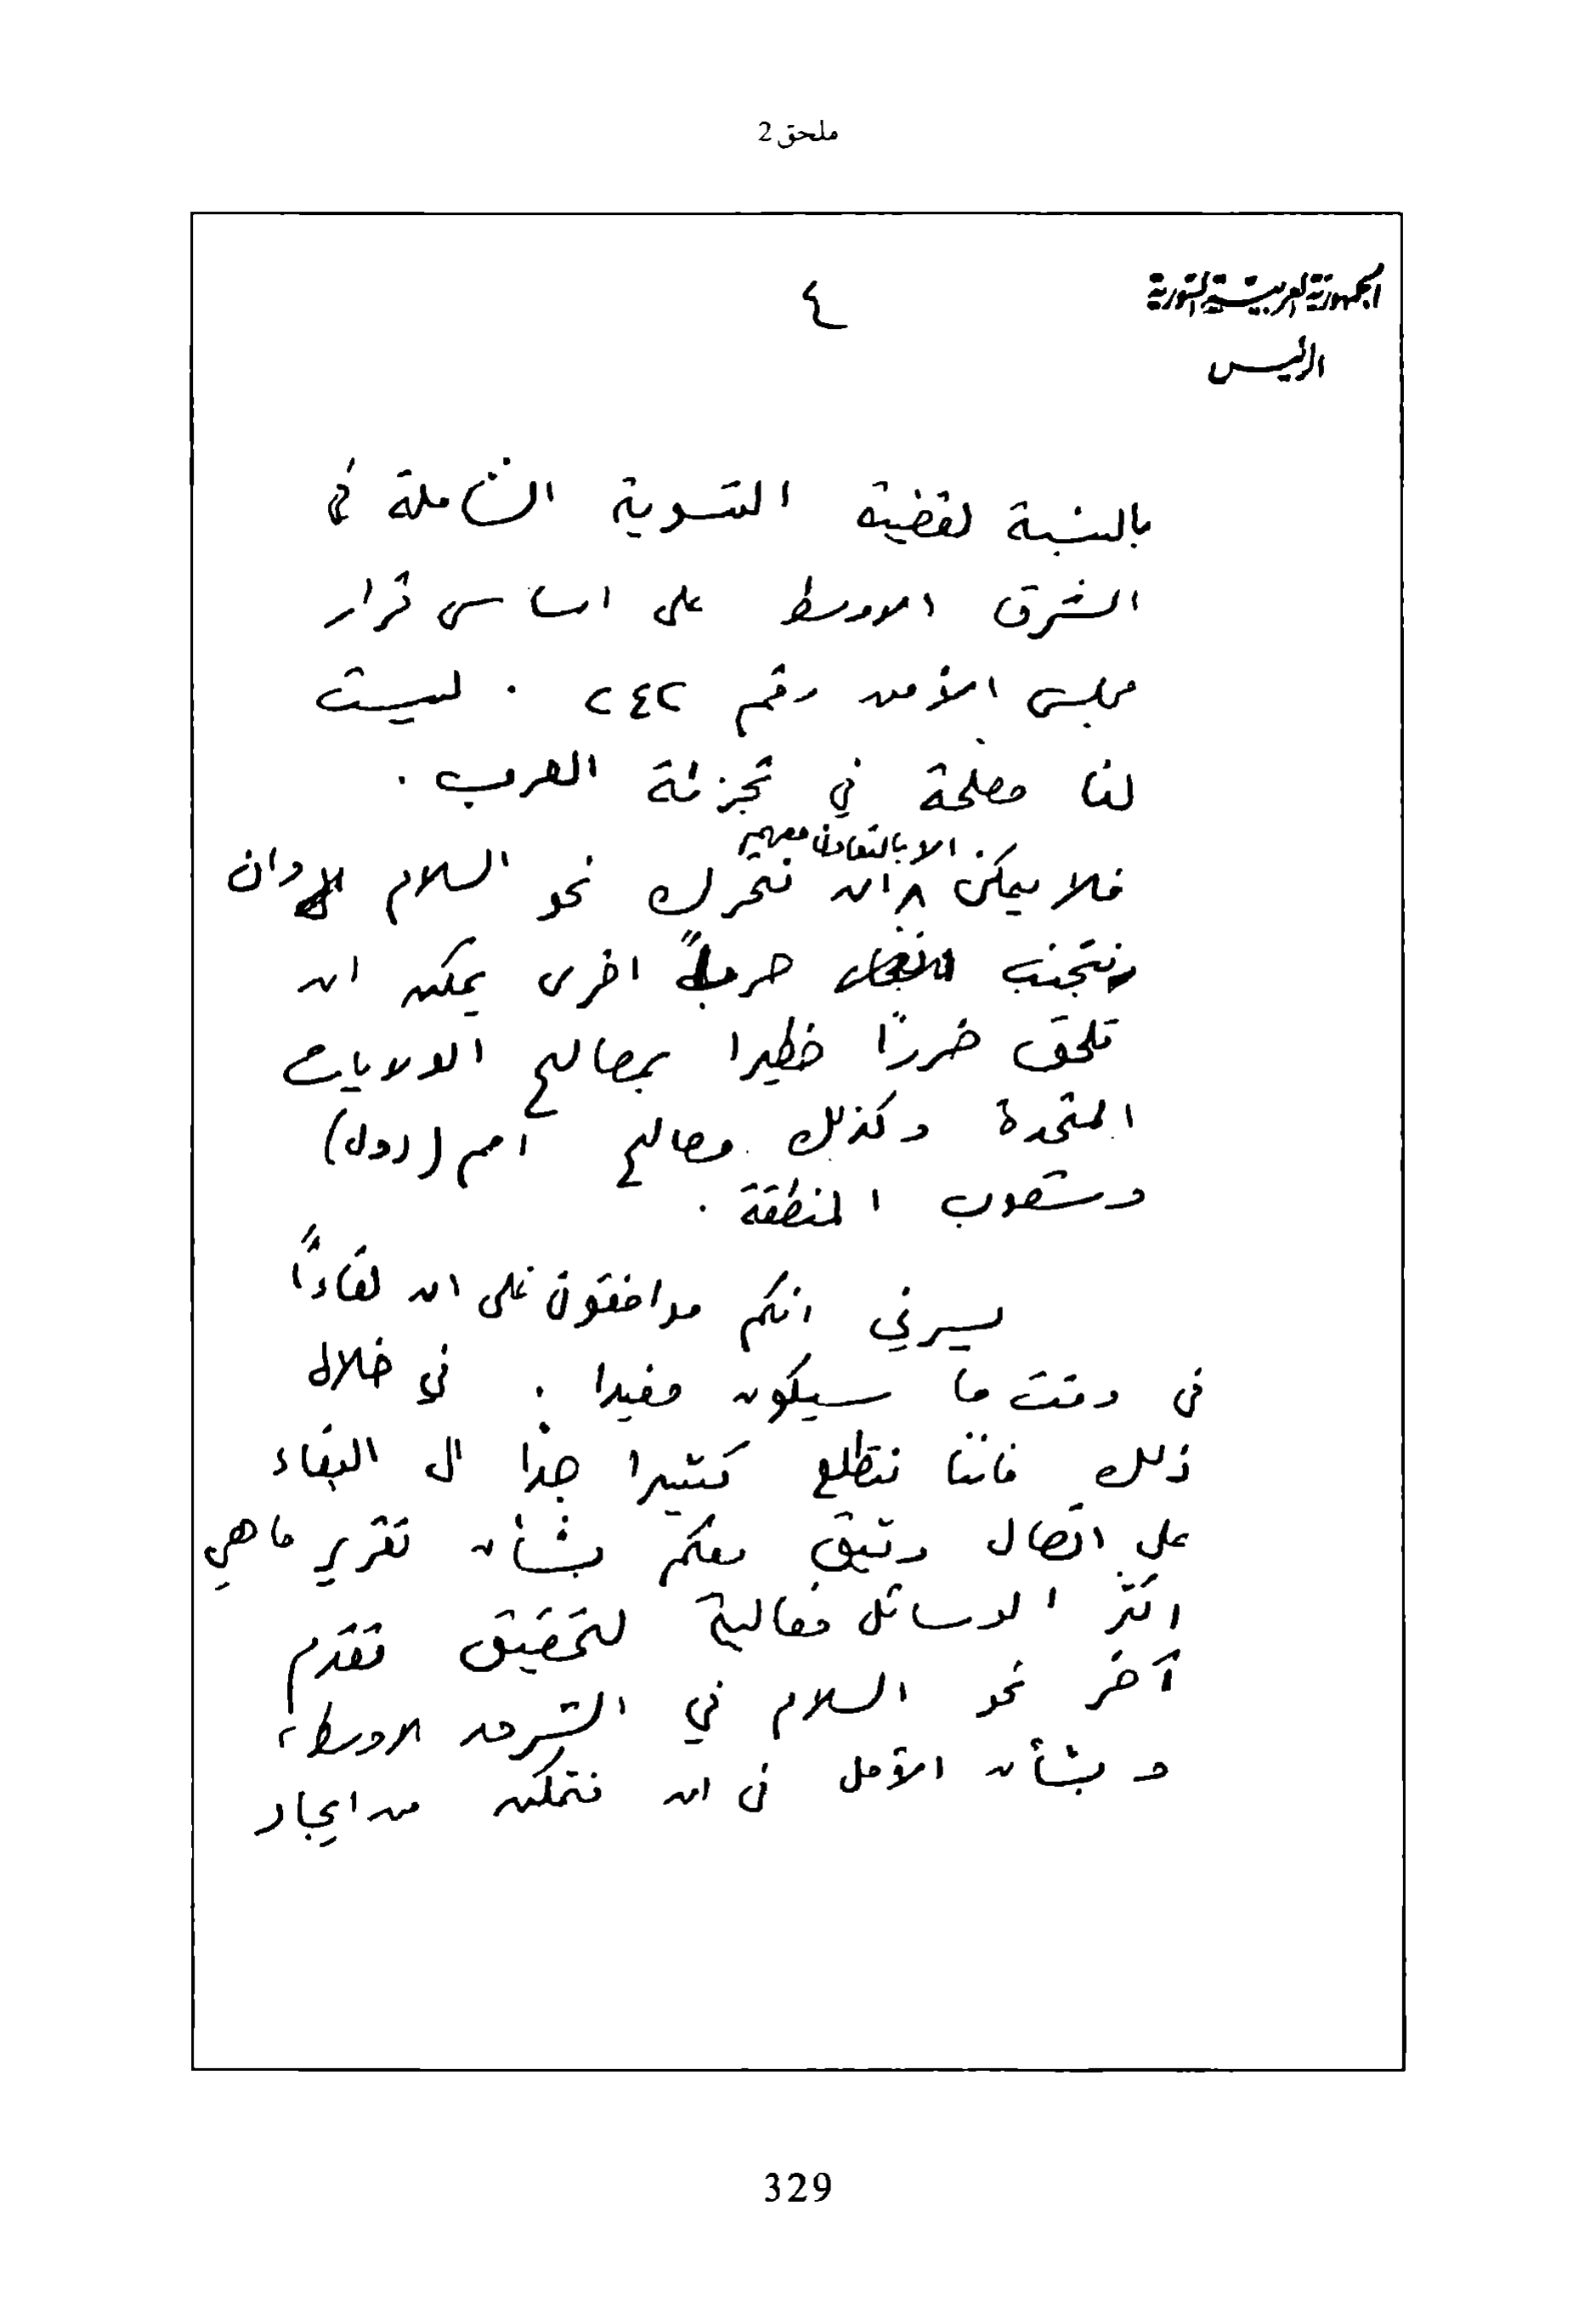 ملحق 2
الجمهورية العربية السورية
٤
الرئيس
بالنسبة لقضية التسوية الشاملة في
الشرق الاوسط على اساس قرار
مجلس الأمن رقم ٢٤٢ . ليست
لنا مصلحة في تجزئة العرب .
الا بالتعاون معهم
فلا يمكن ٨ ان نتحرك نحو السلام وان
نتجنب حرباً اخرى يمكن ان
تلحق ضررًا خطيرا بمصالح الولايات
المتحدة وكذلك مصالح امم (دول)
وشعوب المنطقة .
يسرني انكم موافقون على ان لقاءاً
في وقت ما سيكون مفيدا . في خلال
ذلك فاننا نتطلع كثيرا جدًا الى البقاء
على اتصال وثيق معكم بشأن تقرير ما هي
اكثر الوسائل فعالية لتحقيق تقدم
آخر نحو السلام في الشرق الاوسط ،
وبشأن الأمل في ان نتمكن من ايجاد
329